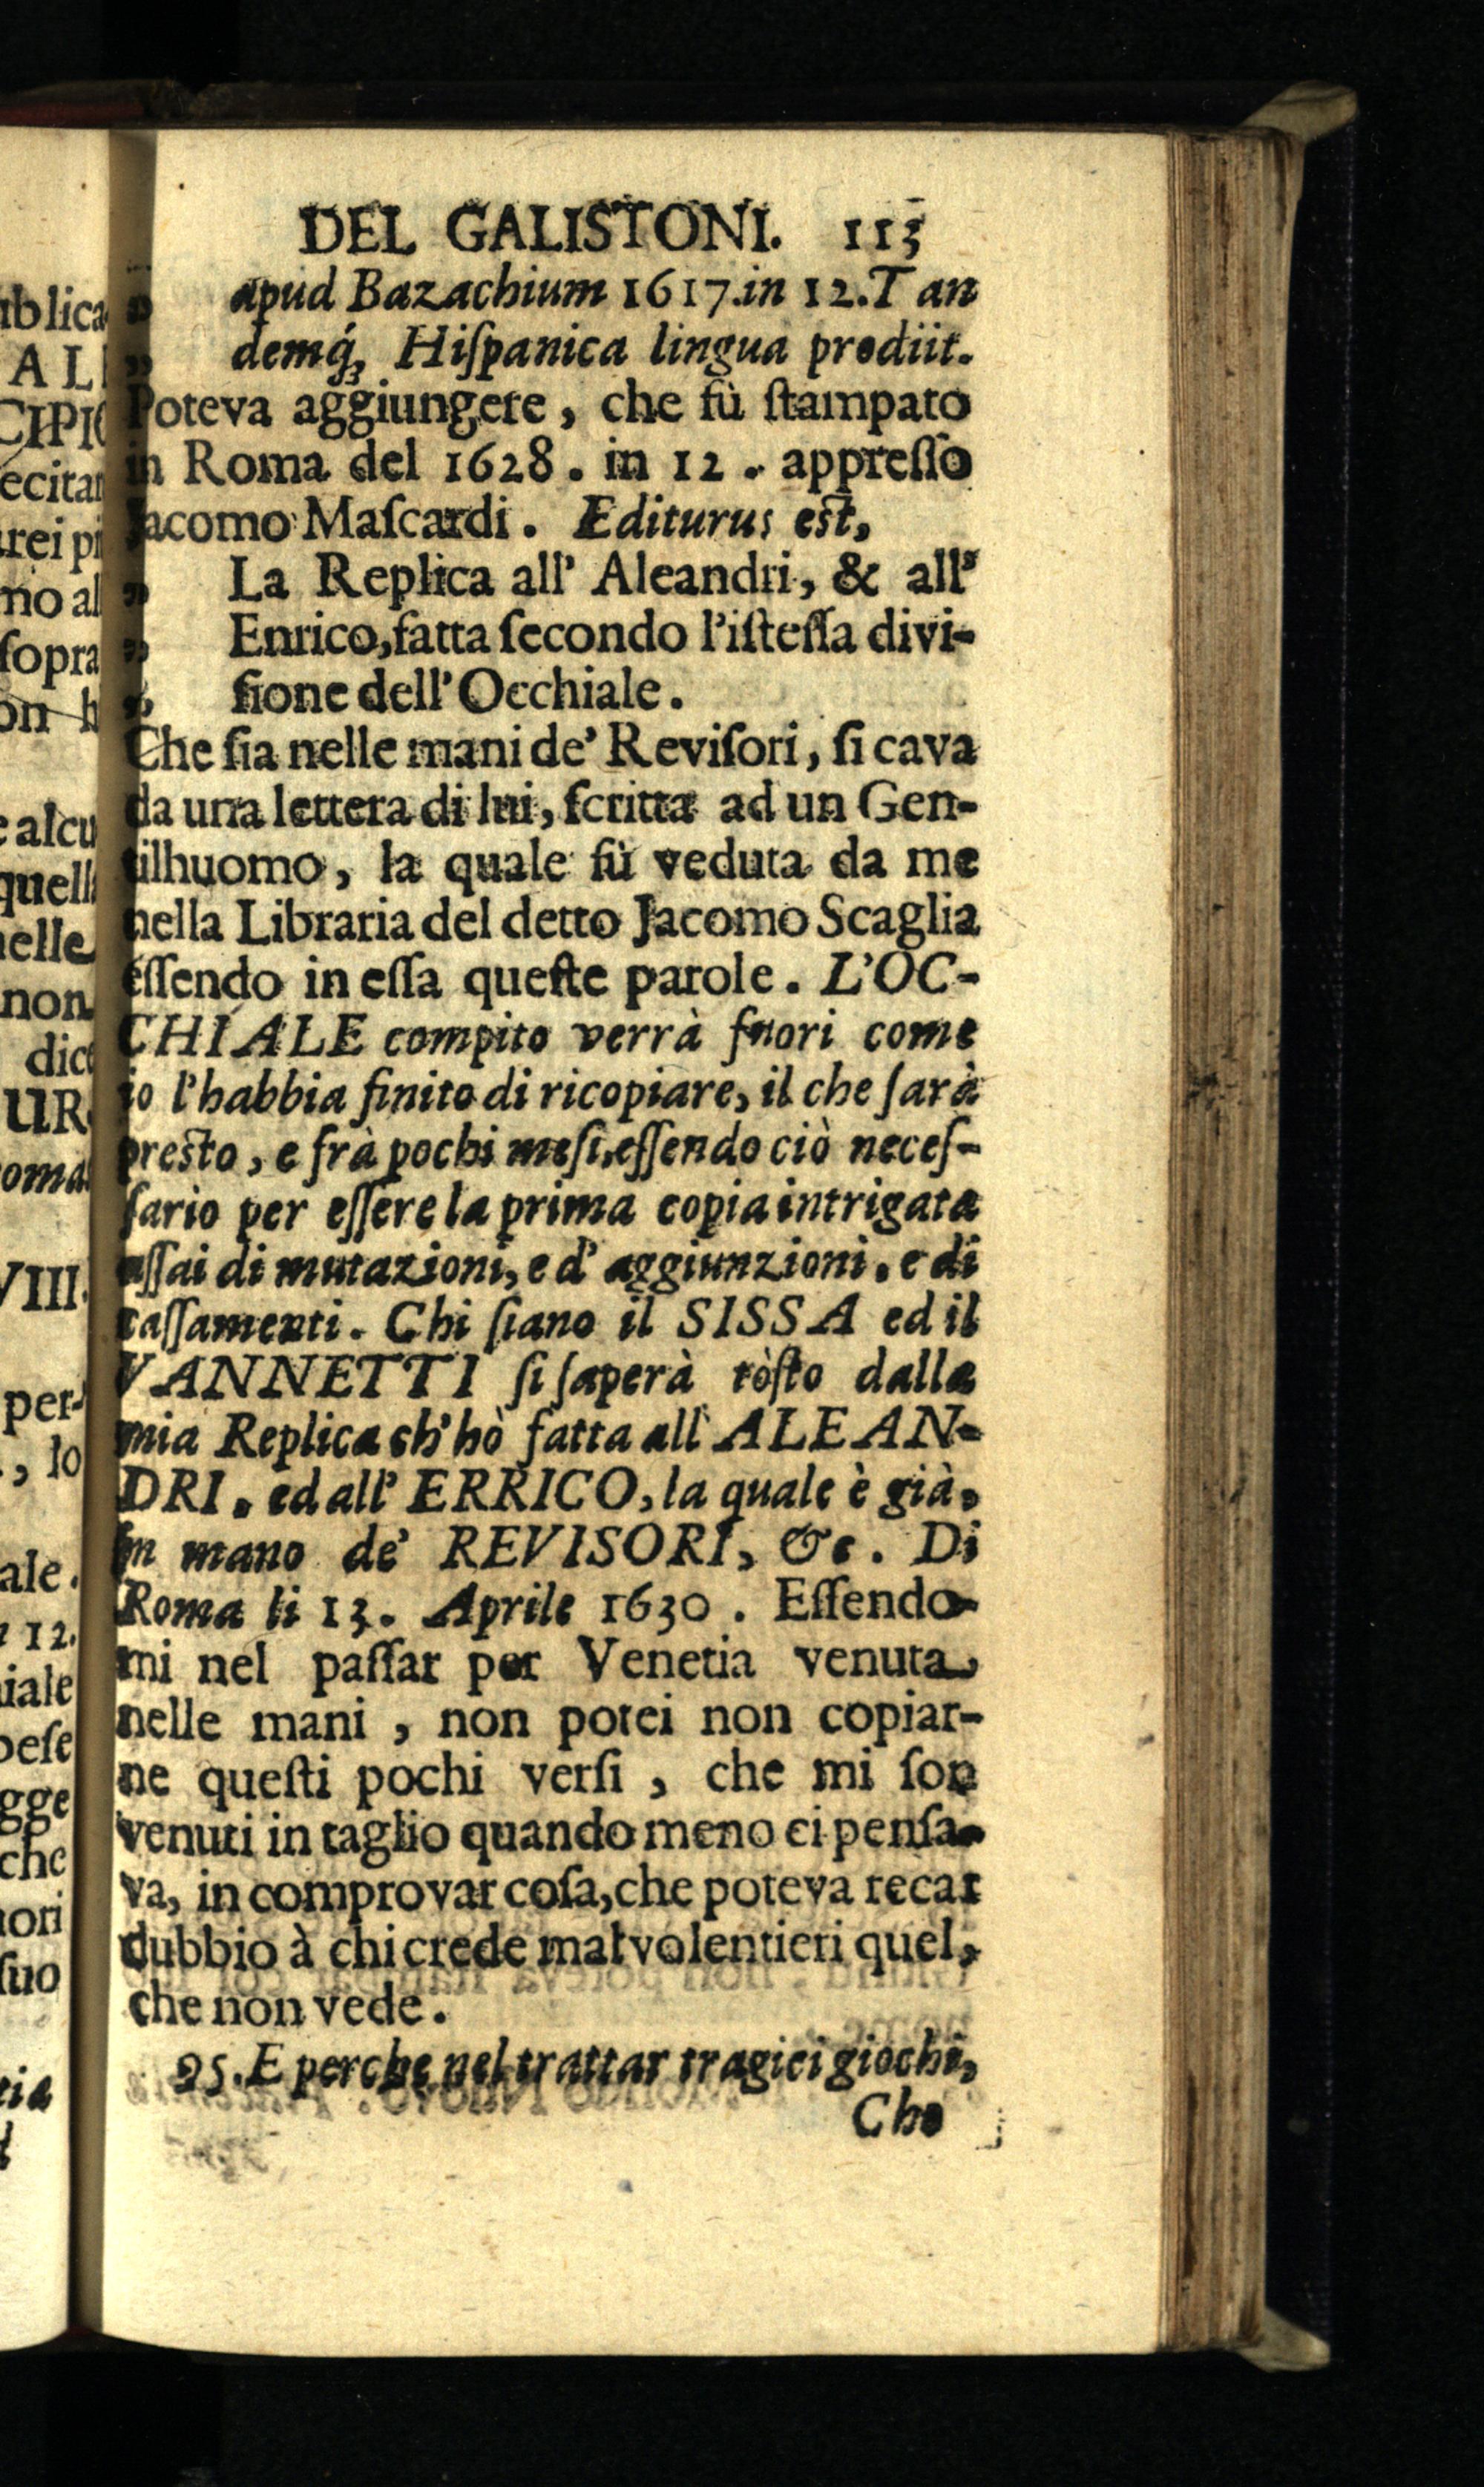 DEL GALISTONI. 113
„ apud Bazachium 1617.in 12.Tan
„ demq́ꝫ Hiſpanica lingua prodiit.
Poteva aggiungere, che fù ſtampato
in Roma del 1628. in 12. appreſſo
Jacomo Maſcardi. Editurus est,
„ La Replica all' Aleandri, & all'
„ Enrico, fatta ſecondo l'iſteſſa divi-
„ ſione dell'Occhiale.
Che ſia nelle mani de' Reviſori, ſi cava
da una lettera di lui, ſcritta ad un Gen-
tilhuomo, la quale fù veduta da me
nella Libraria del detto Jacomo Scaglia
eſſendo in eſſa queſte parole. L'OC-
CHIALE compito verrà fuori come
io l'habbia finito di ricopiare, il che ſarà
presto, e frà pochi meſi, eſſendo ciò neceſ-
ſario per eſſere la prima copia intrigata
aſſai di mutazioni, e d' aggiunzioni, e di
caſſamenti. Chi ſiano il SISSA ed il
VANNETTI ſi ſaperà tòſto dalla
mia Replica ch'hò fatta all' ALEAN-
DRI, ed all' ERRICO, la quale è già,
in mano de' REVISORI, &c. Di
Roma li 13. Aprile 1630. Eſſendo-
mi nel paſſar per Venetia venuta
nelle mani, non potei non copiar-
ne queſti pochi verſi, che mi ſon
venuti in taglio quando meno ci penſa-
va, in comprovar coſa, che poteva recar
dubbio à chi crede malvolentieri quel,
che non vede.
95. E perche nel trattar tragici giochi,
Che